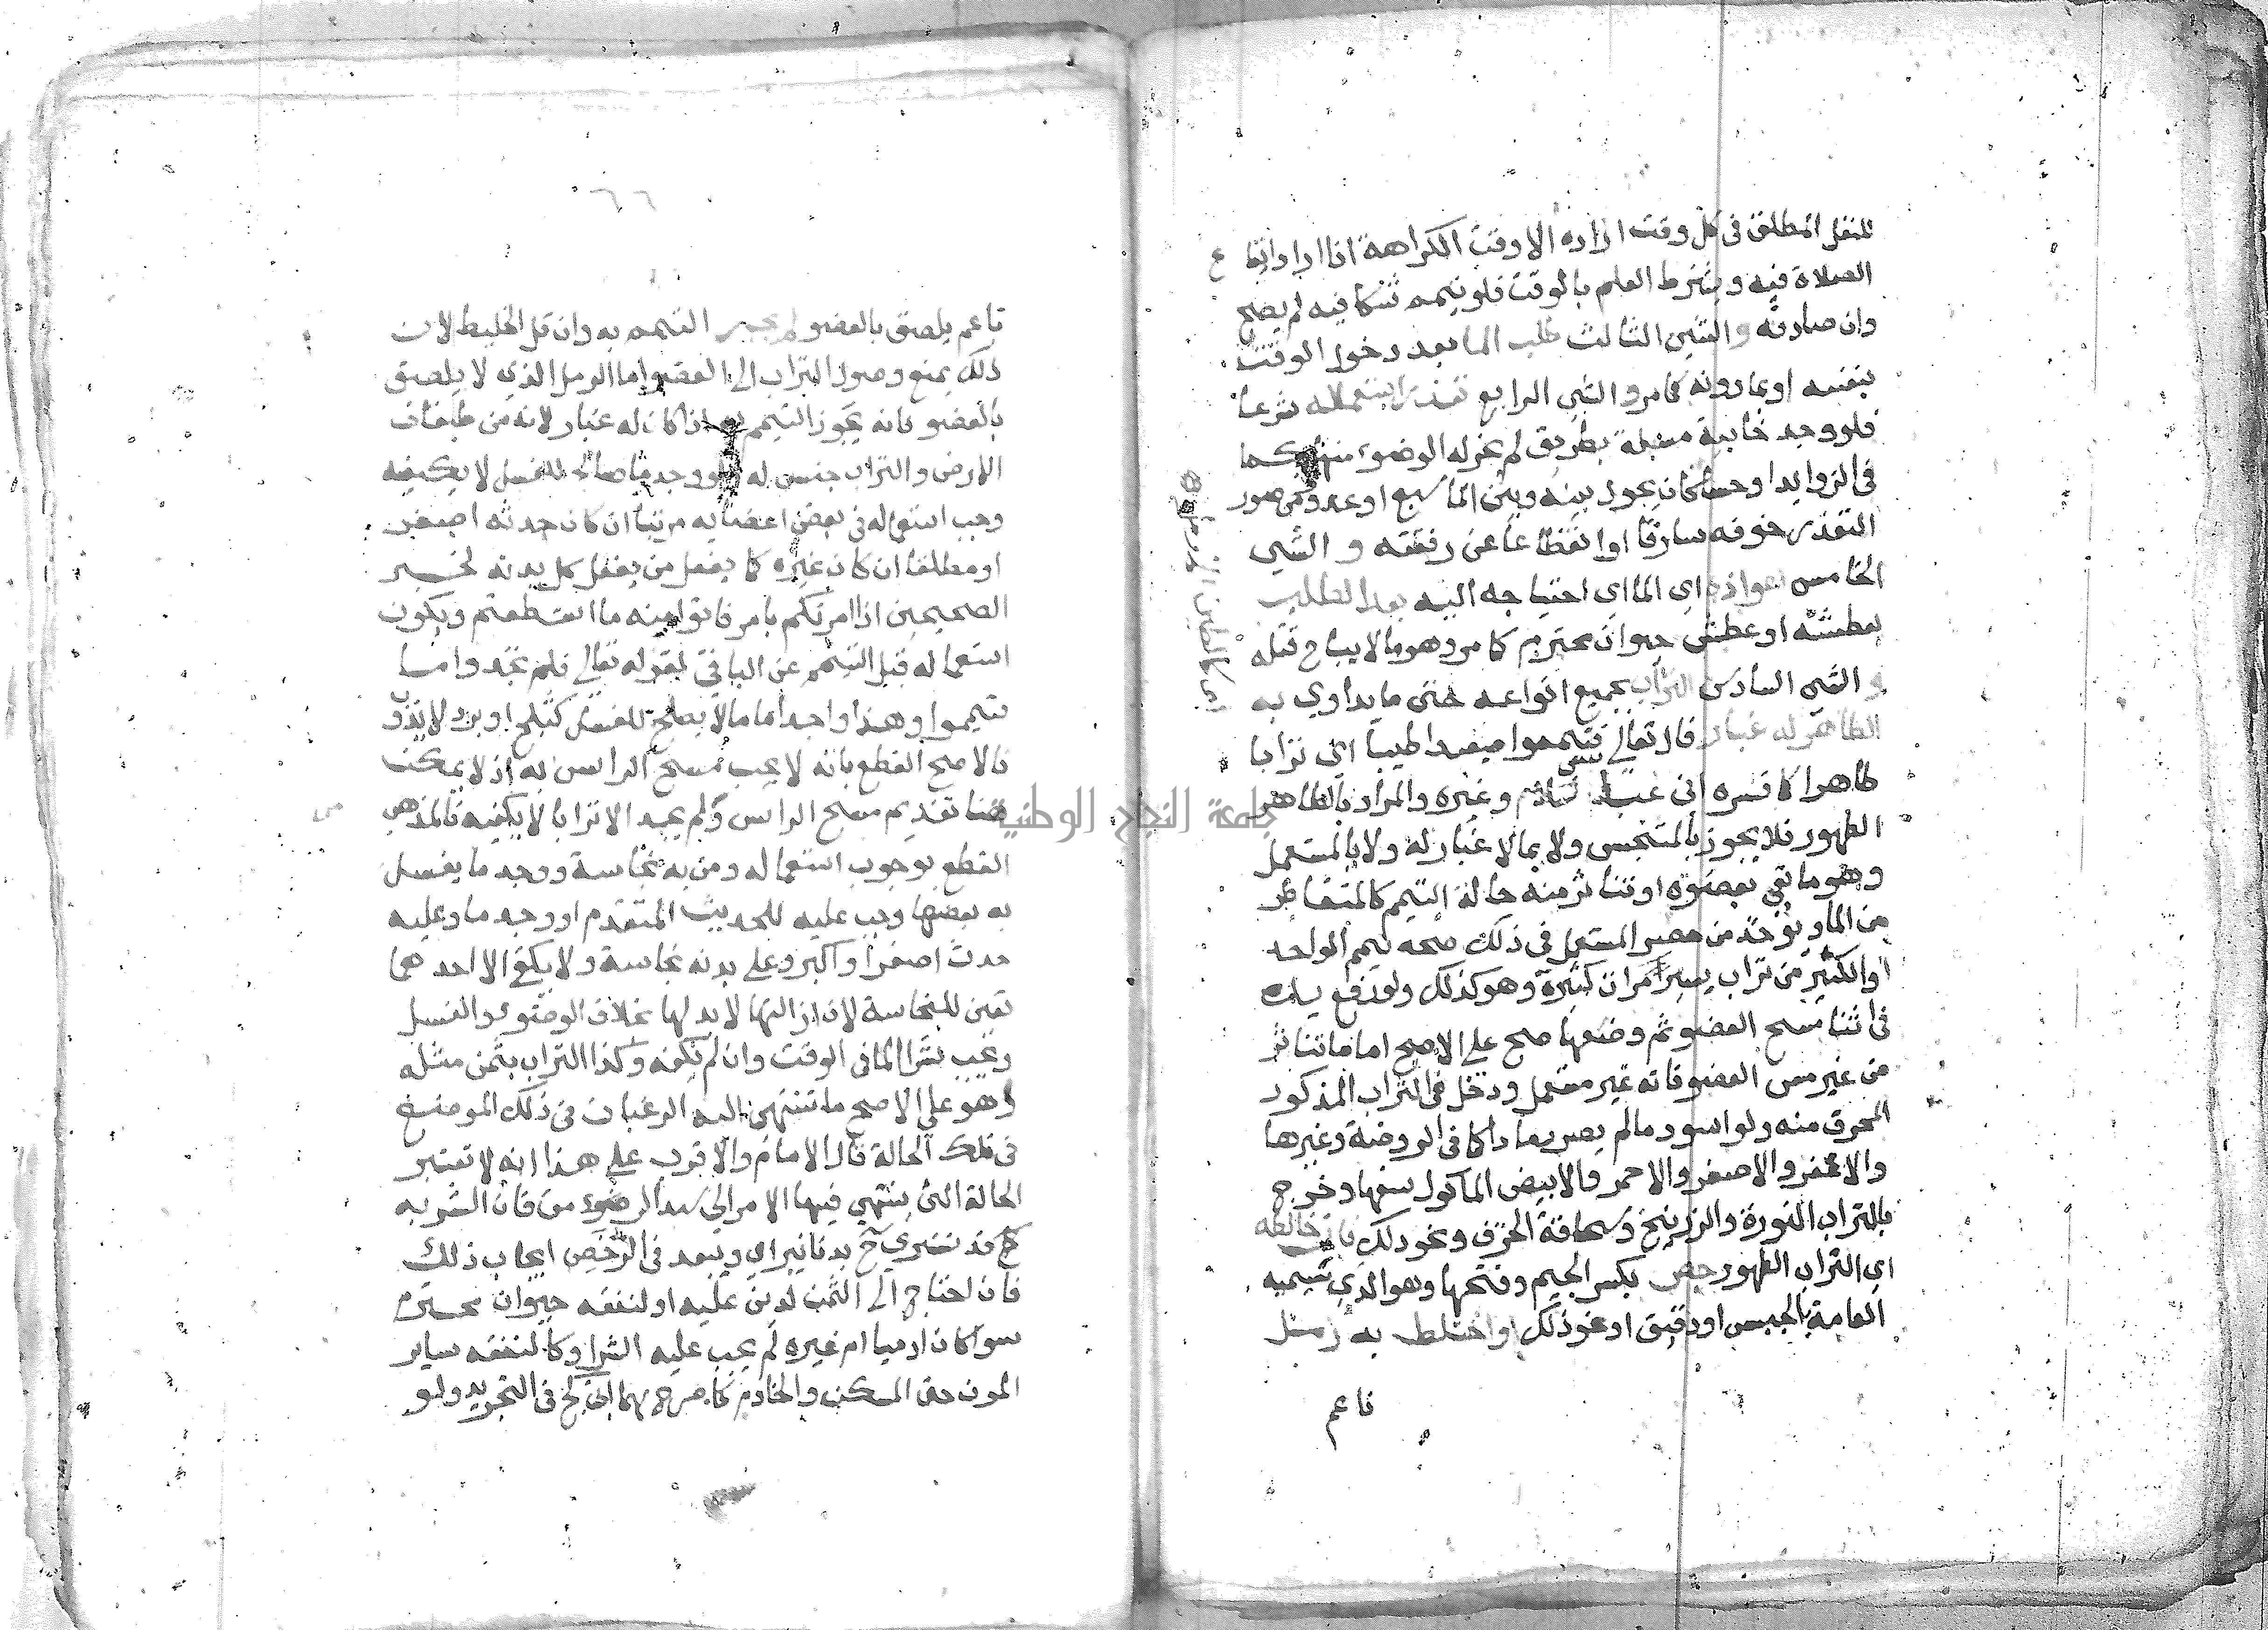 للنفل المطلق في كل وقت اراده الا وقت الكراهة اذا اراد ايقاع
الصلاة فيه ويشترط العلم بالوقت فلو تيمم شاكا فيه لم يصح
وان صادفه والشي الثالث طلب الما بعد دخول الوقت
بنفسه او بماذونه كما مر والشي الرابع تعذر استعماله شرعا
فلو وجد خابية مسبلة بطريق لم يجز له الوضوء منها كما
في الزوايد او حسا كان يحول بينه وبين الما سبع او عدو ومن صور
التعذر خوفه سارقا او انقطاعا عن رفقته والشي
الخامس اعوازه اي الما اي احتياجه اليه بعد الطلب
لعطشه او عطش حيوان محترم كما مر وهو ما لا يباح قتله
والشي السادس التراب بجميع انواعه حتى ما يداوي به
الطاهر له غبار قال تعالي فتيمموا صعيدا طيبا اي ترابا
طاهرا كما فسره ابن عباس وغيره والمراد بالطاهر
الطهور فلا يجوز بالمتنجس ولا بما لا غبار له ولا بالمستعمل
وهو ما بقي بعضوه او تناثر منه حالة التيمم كالمتقاطر
من الما ويوخذ من حصر المستعمل في ذلك صحة تيمم الواحد
او الكثير من تراب يسير مرات كثيرة وهو كذلك ولو رفع يده
في اثنا مسح العضو ثم وضعها صح على الاصح اما ما تناثر
من غير مس العضو فانه غير مستعمل ودخل في التراب المذكور
المحرق منه ولو اسود ما لم يصر رمادا كما في الروضة وغيرها
والاعفر والاصفر والاحمر والابيض الماكول سفها وخرج
بالتراب النورة والزرنيخ وسحاقة الخزف ونحو ذلك فان خالطه
اي التراب الطهور جص بكسر الجيم وفتحها وهو الذي تسميه
العامة بالجبس او دقيق او نحو ذلك او اختلط به رمل
ناعم
٦٦
ناعم يلصق بالعضو لم يجز التيمم به وان قل الخليط لان
ذلك يمنع وصول التراب الى العضو اما الرمل الذي لا يلصق
بالعضو فانه يجوز التيمم به اذا كان له غبار لانه من طبقات
الارض والتراب جنس له ولو وجد ما صالحا للغسل لا يكفيه
وجب استعماله في بعض اعضايه مرتبا ان كان حدثه اصغر
او مطلقا ان كان غيره كما يفعل من يغسل كل بدنه لخبر
الصحيحين اذا امرتكم بامر فاتوا منه ما استطعتم ويكون
استعماله قبل التيمم عن الباقي لقوله تعالي فلم تجدوا ما
فتيمموا وهذا واجد اما ما لا يصلح للغسل كثلج او برد لا يذوب
فالاصح القطع بانه لا يجب مسح الراس به اذ لا يمكن
هنا تقديم مسح الراس ولم يجد الا ترابا لا يكفيه فالمذهب
القطع بوجوب استعماله ومن به نجاسة ووجد ما يغسل
به بعضها وجب عليه للحديث المتقدم او وجد ما وعليه
حدث اصغر او اكبر وعلى بدنه نجاسة ولا يكفي الا احدهما
تعين للنجاسة لان ازالتها لا بدل لها بخلاف الوضوء والغسل
ويجب شرا الما في الوقت وان لم يكفه وكذا التراب بثمن مثله
وهو على الاصح ما تنتهي اليه الرغبات في ذلك الموضع
في تلك الحالة قال الامام والاقرب على هذا انه لا تعتبر
الحالة التي ينتهي فيها الامر الى سد الرمق فان الشربة
قد تشتري ح بدنانير اي ويبعد في الرخص ايجاب ذلك
فان احتاج الى الثمن لدين عليه او لنفقة حيوان محترم
سوا كان ادميا ام غيره لم يجب عليه الشرا وكالنفقة ساير
المون حتى المسكن والخادم كما صرح بهما ابن كج في التجريد ولو
جامعة النجاح الوطنية